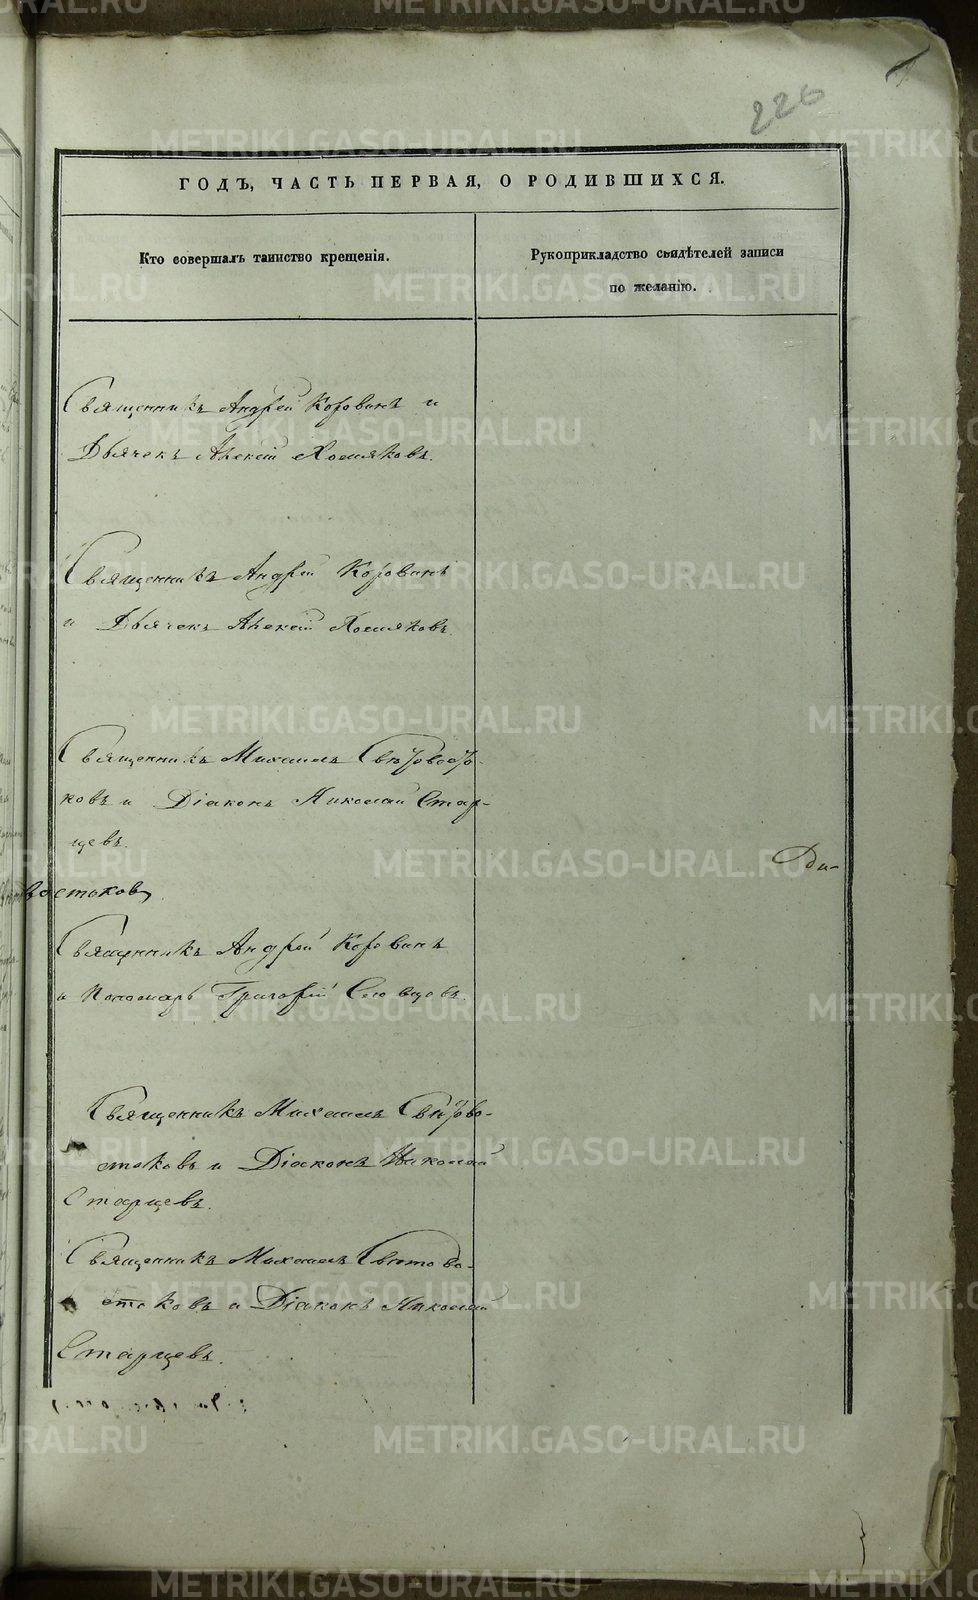 226
ГОДЪ, ЧАСТЬ ПЕРВАЯ, О РОДИВШИХСЯ.
Кто совершалъ таинство крещенія.
Рукоприкладство свидѣтелей записи
по желанію.
Священникъ Андрей Коровинъ и
Дьячекъ Алексій Хомяковъ.
Священникъ Андрей Коровинъ
и Дьячекъ Алексій Хомяковъ.
Священникъ Михаилъ
ковъ и Діаконъ Николай Стар-
цевъ.
Ди-
востоковъ
Священникъ Андрей Коровинъ
и Пономарь Григорій Словцовъ.
Священникъ Михаилъ Свѣтово-
стоковъ и Діаконъ Николай
Старцевъ.
Священникъ Михаилъ Свѣтово-
стоковъ и Діаконъ Николай
Старцевъ.
METRIKI.GASO-URAL.RU